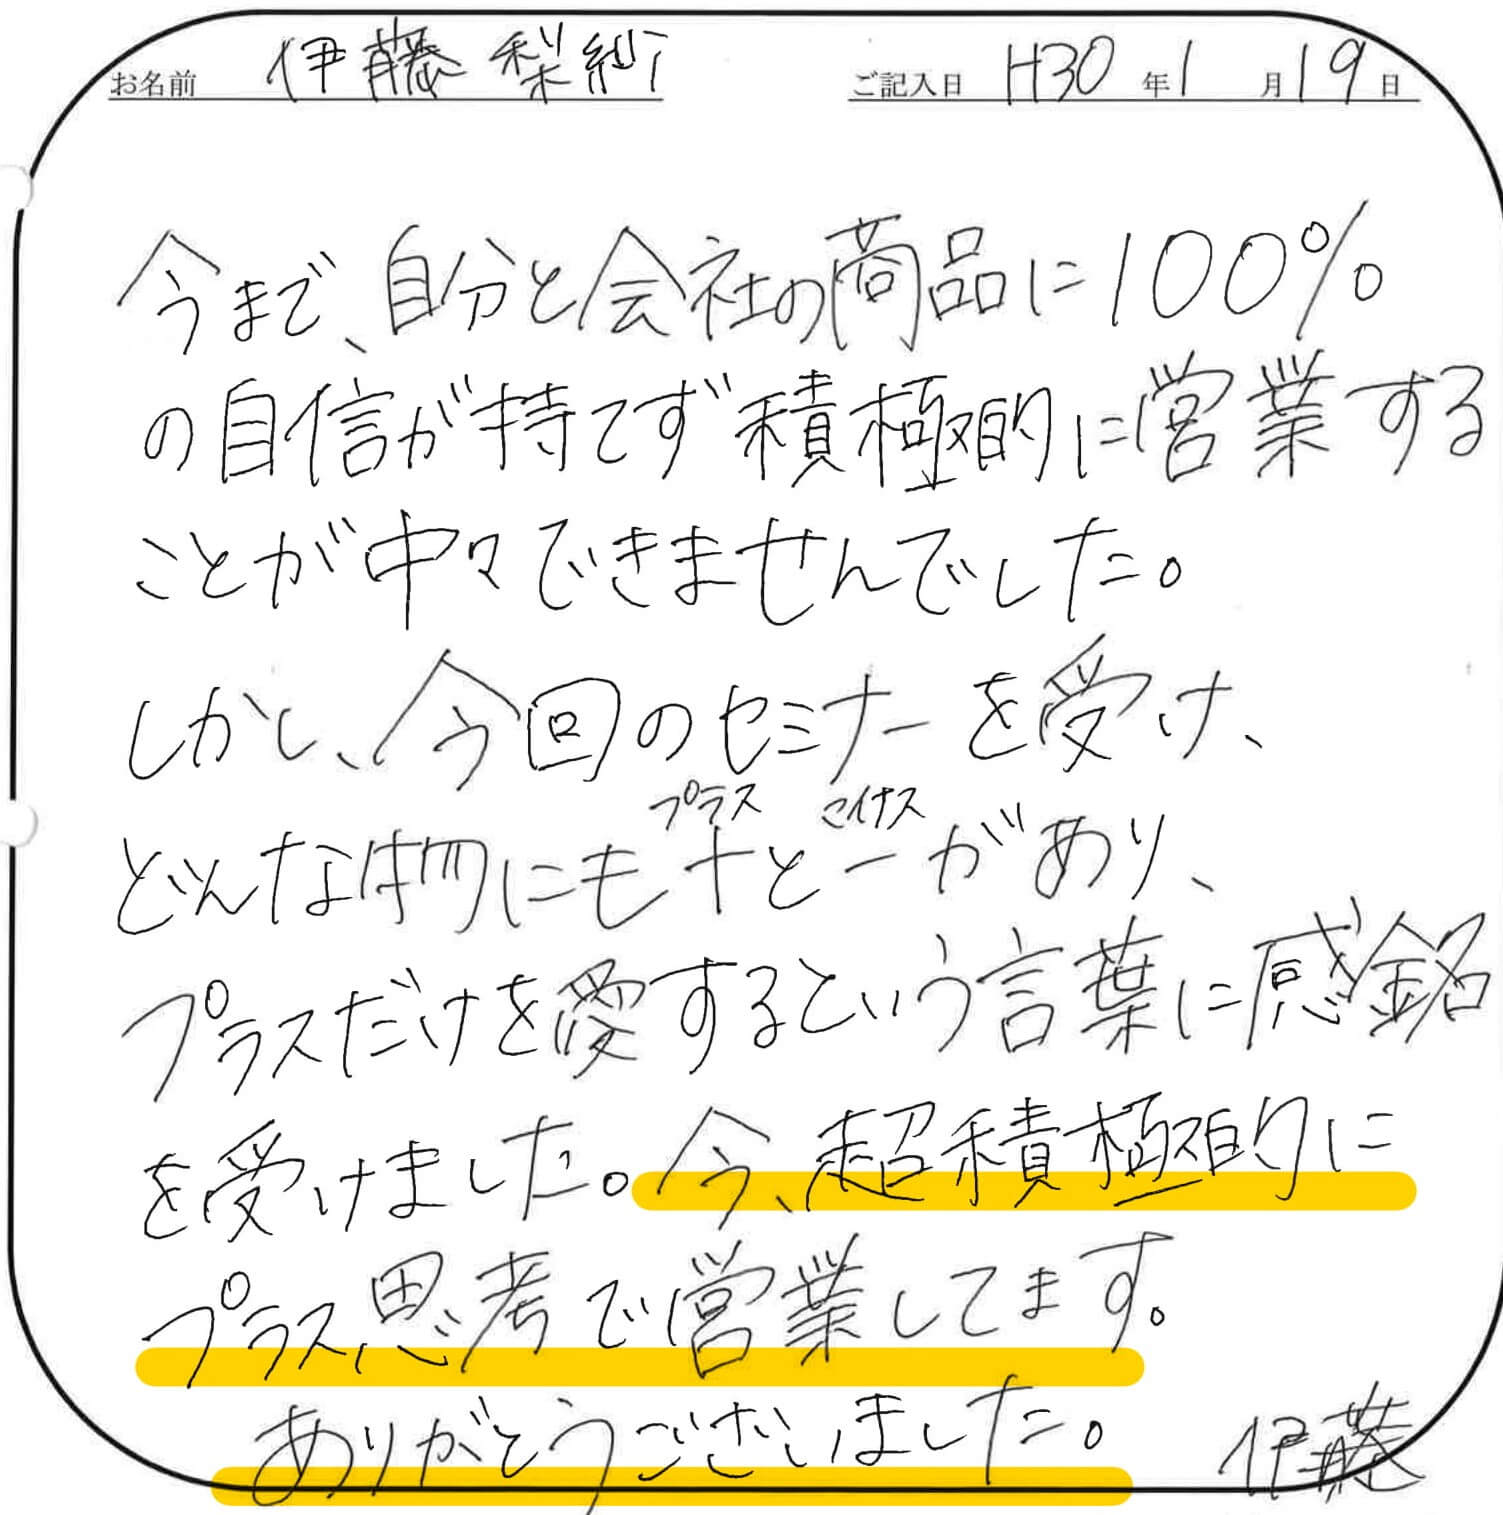 お名前 伊藤 梨紗 ご記入日 H30年1月19日
今まで、自分と会社の商品に100%
の自信が持てず積極的に営業する
ことが中々できませんでした。
しかし、今回のセミナーを受け、
プラス マイナス
どんな物にも+と-があり、
プラスだけを愛するという言葉に感銘
を受けました。今、超積極的に
プラス思考で営業してます。
ありがとうございました。 伊藤